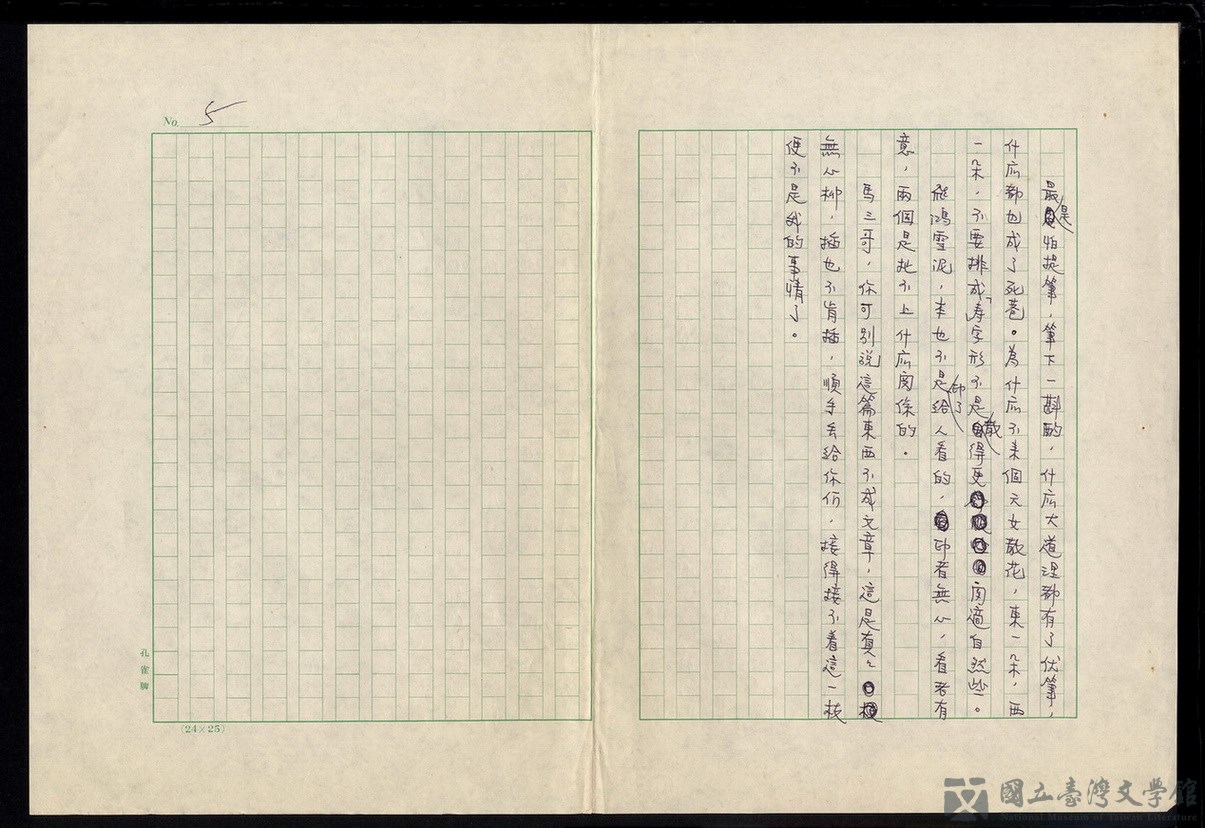 No. 5
最是怕提筆，筆下一斟酌，什広大道理都有了伏筆，
什広都也成了死巷。為什広不来個天女散花，東一朵，西
一朵，不要排成「寿字形不是散得更闲適自然些。
飛鴻雪泥，本也不是印了給人看的，印者無心，看者有
意，兩個是扯不上什広関係的。
馬三哥，你可別說這篇東西不成文章，這是真々
無心柳，插也不肯插，順手丟給你们，接得接不着這一枝
便不是我的事情了。
孔雀牌
(24×25)
國立臺灣文學館
National Museum of Taiwan Literature